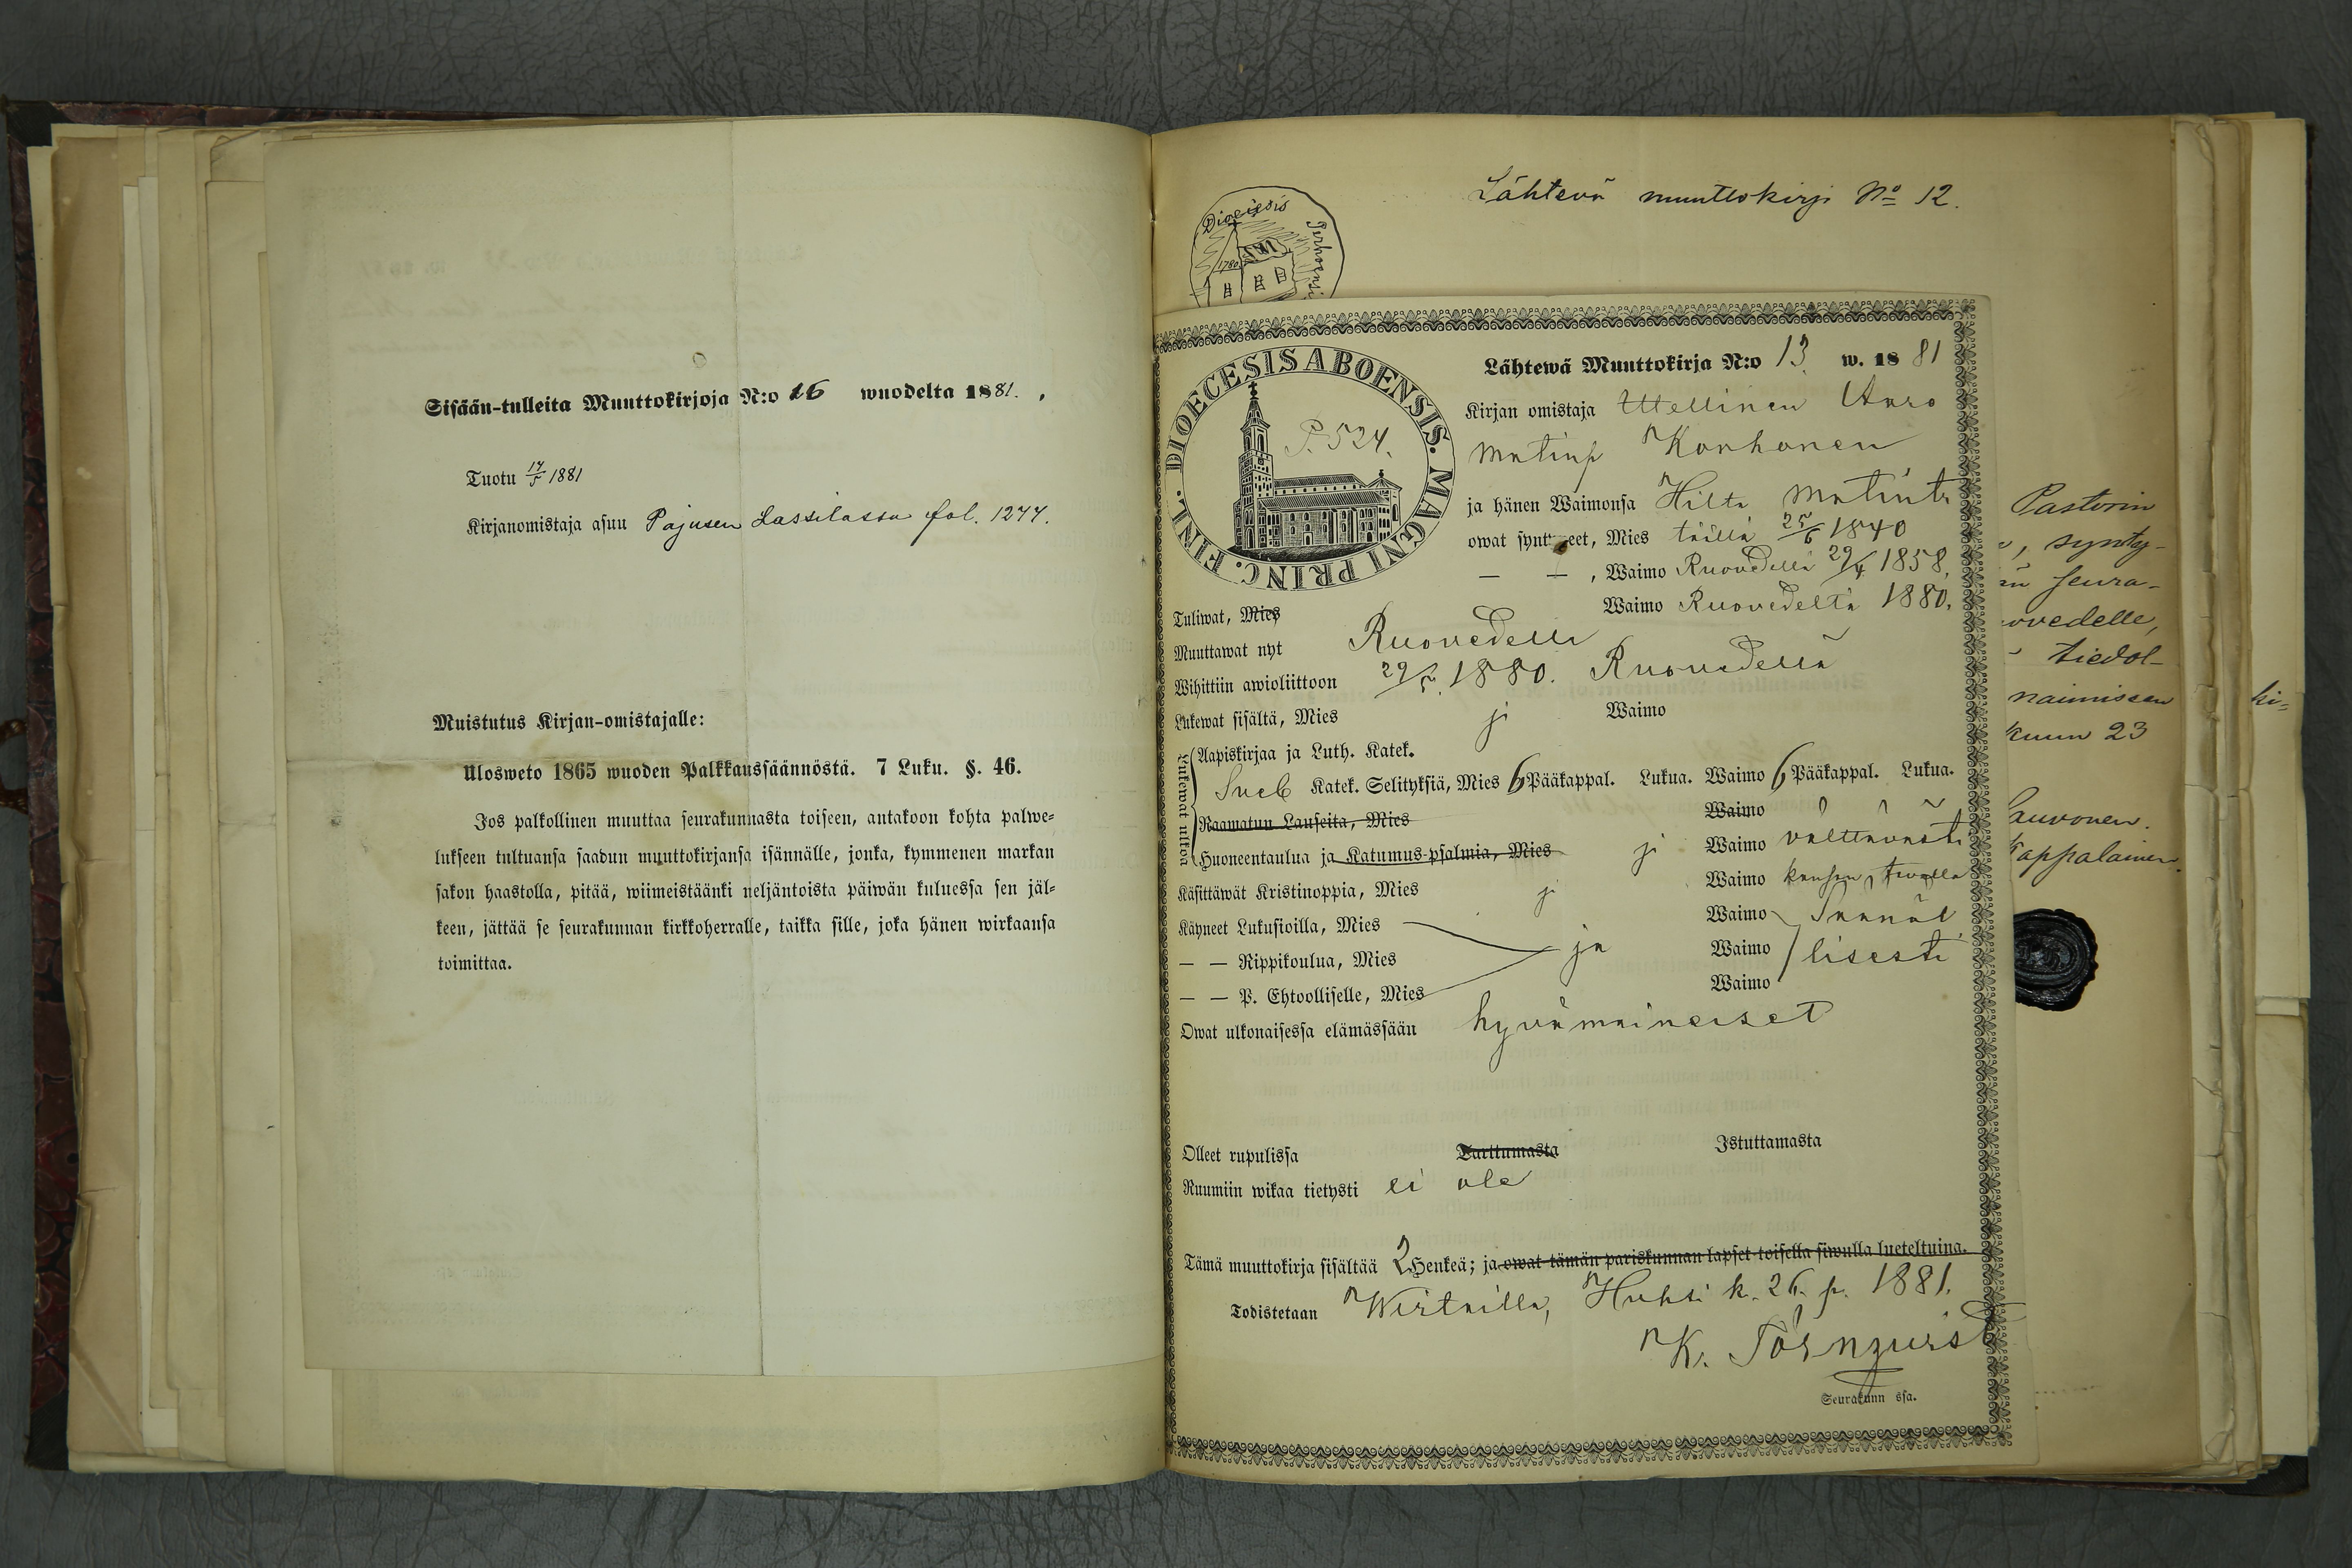 Sisään-tulleita Muuttokirjoja N:o 16 wuodelta 1881.
Tuotu 17/5 1881
Kirjanomistaja asuu Pajusen Lassilassa fol. 1244.
Muistutus Kirjan-omistajalle:
Ulosweto 1865 wuoden Palkkaussäännöstä. 7 Luku. §. 46.
Jos palkollinen muuttaa seurakunnasta toiseen, antakoon kohta palwe-
lukseen tultuansa saadun muuttokirjansa isännälle, jonka, kymmenen markan
sakon haastolla, pitää, wiimeistäänki neljäntoista päiwän kuluessa sen jäl-
keen, jättää se seurakunnan kirkkoherralle, taikka sille, joka hänen wirkaansa
toimittaa.
Lähtevä muuttokirja No 12.
Dioecesis
1780
DIOECESIS ABOENSIS. MAGNI PRINC. FINL.
P. 524.
Lähtewä Muuttokirja N:o 13 w. 1881
Kirjan omistaja Itellinen
Matinp Korhonen
ja hänen Waimonsa Hilta Matint:
owat syntyneet, Mies täällä 25/6 1840
— — , Waimo Ruovedellä 29/4 1858.
Tuliwat, Mies Waimo Ruovedeltä 1880.
Muuttawat nyt Ruovedelle
Wihittiin awioliittoon 29/5. 1880. Ruovedellä
Lukewat sisältä, Mies ja Waimo
Lukewat ulkoa
Aapiskirjaa ja Luth. Katek.
Sveb Katek. Selityksiä, Mies 6 Pääkappal. Lukua. Waimo 6 Pääkappal. Lukua.
Raamatun Lauseita, Mies Waimo
Huoneentaulua ja Katumus-psalmia, Mies ja Waimo välttävästi
Käsittäwät Kristinoppia, Mies ja Waimo
Käyneet Lukusioilla, Mies Waimo Säännöl
— — Rippikoulua, Mies ja Waimo lisesti
— — P. Ehtoolliselle, Mies Waimo
Owat ulkonaisessa elämässään hyvämaineiset
Olleet rupulissa Tarttumasta Istuttamasta
Ruumiin wikaa tietysti ei ole
Tämä muuttokirja sisältää 2 Henkeä; ja owat tämän pariskunnan lapset toisella siwulla lueteltuina.
Todistetaan Wirtailla, Huhti k. 26 p. 1881.
K. Törnqvist
Seurakunn ssa.
Pastorin
, synty-
seura-
ovedelle,
tiedol-
naimiseen
kuun 23
auronen.
Kappalainen.
ki-